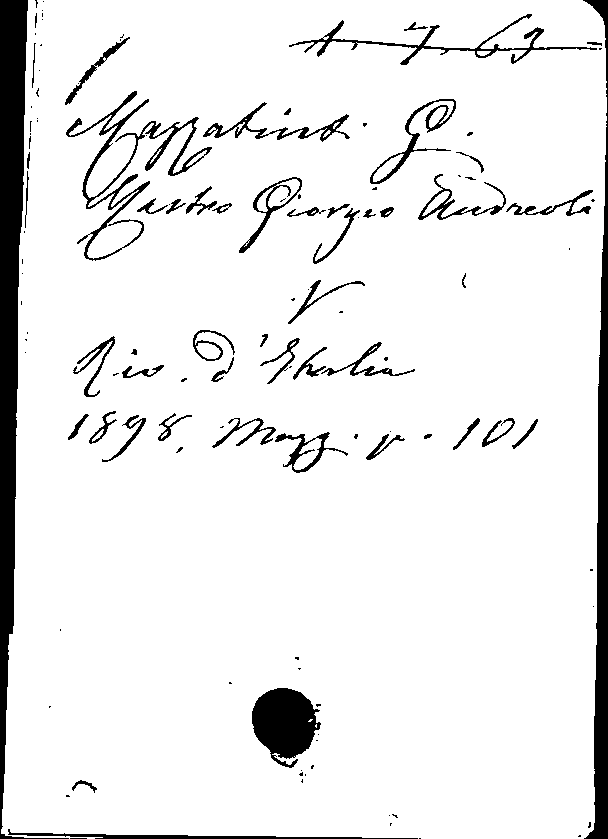 1. 7. 63
Mazzatinti. G.
Mastro Giorgio Andreoli
V.
Riv. d'Italia
1898, Magg. p. 101